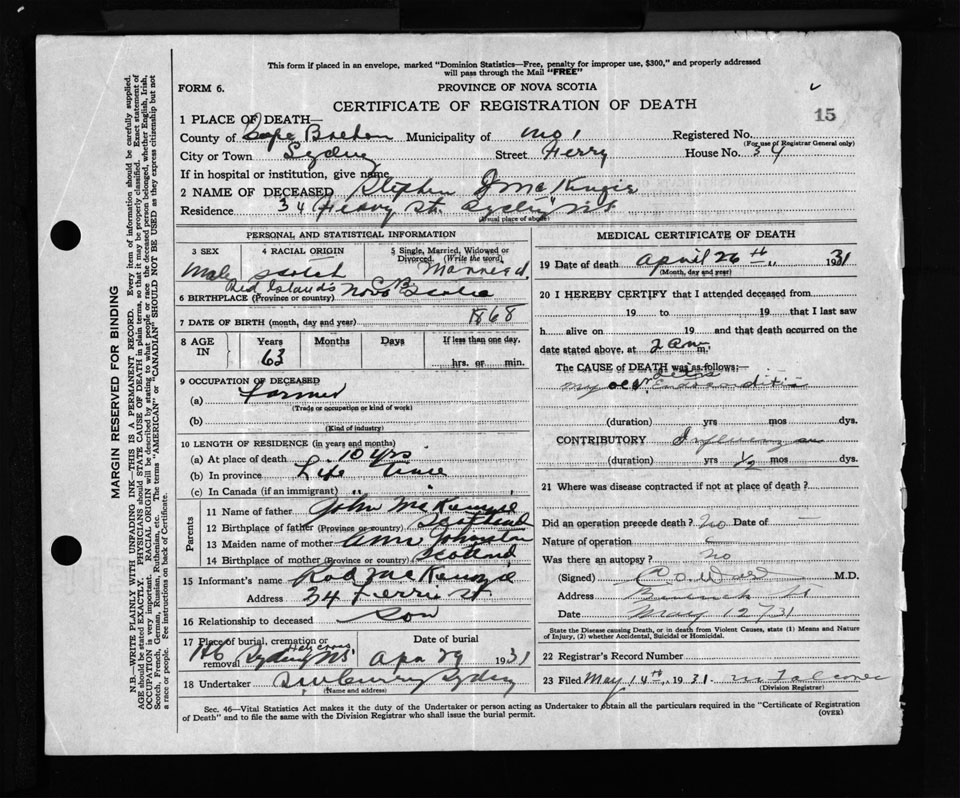 This form if placed in an envelope, marked "Dominion Statistics—Free, penalty for improper use, $300," and properly addressed
will pass through the Mail "FREE"
FORM 6.
PROVINCE OF NOVA SCOTIA
CERTIFICATE OF REGISTRATION OF DEATH
15
1 PLACE OF DEATH—
County of Cape Breton Municipality of no 1 Registered No.
(For use of Registrar General only)
City or Town Sydney Street Ferry House No. 34
If in hospital or institution, give name
2 NAME OF DECEASED Stephen J McKenzie
Residence 34 Ferry St. Sydney N.S.
(Usual place of abode)
PERSONAL AND STATISTICAL INFORMATION
3 SEX 4 RACIAL ORIGIN 5 Single, Married, Widowed or Divorced. (Write the word)
Male Scotch Married
6 BIRTHPLACE (Province or country) Red Islands Nova Scotia
7 DATE OF BIRTH (month, day and year) 1868
8 AGE IN Years Months Days If less than one day,
63 hrs. or min.
9 OCCUPATION OF DECEASED
(a) Farmer
(Trade or occupation or kind of work)
(b)
(Kind of industry)
10 LENGTH OF RESIDENCE (in years and months)
(a) At place of death 10 yrs
(b) In province Life time
(c) In Canada (if an immigrant) " "
Parents
11 Name of father John McKenzie
12 Birthplace of father (Province or country) Scotland
13 Maiden name of mother Ann Johnston
14 Birthplace of mother (Province or country) Scotland
15 Informant's name Rod McKenzie
Address 34 Ferris St
16 Relationship to deceased Son
17 Place of burial, cremation or removal Date of burial
Holy Cross Sydney N.S. Apr 29 1931
18 Undertaker Sydney
(Name and address)
MEDICAL CERTIFICATE OF DEATH
19 Date of death April 26th 1931
(Month, day and year)
20 I HEREBY CERTIFY that I attended deceased from
19 to 19 that I last saw
h alive on 19 and that death occurred on the
date stated above, at 2 am m.
The CAUSE OF DEATH was as follows:
Endocarditis
(duration) yrs mos dys.
CONTRIBUTORY Influenza
(duration) yrs 1/2 mos dys.
21 Where was disease contracted if not at place of death?
Did an operation precede death? no Date of —
Nature of operation
Was there an autopsy? no
(Signed) M.D.
Address
Date May 12/31
State the Disease causing Death, or in death from Violent Causes, state (1) Means and Nature
of Injury, (2) whether Accidental, Suicidal or Homicidal.
22 Registrar's Record Number
23 Filed May 14th, 1931
(Division Registrar)
Sec. 46—Vital Statistics Act makes it the duty of the Undertaker or person acting as Undertaker to obtain all the particulars required in the "Certificate of Registration
of Death" and to file the same with the Division Registrar who shall issue the burial permit.
(OVER)
MARGIN RESERVED FOR BINDING
N.B.—WRITE PLAINLY WITH UNFADING INK—THIS IS A PERMANENT RECORD. Every item of information should be carefully supplied.
AGE should be stated EXACTLY. PHYSICIANS should STATE CAUSE OF DEATH in plain terms, so that it may be properly classified. Exact statement of
OCCUPATION is very important. RACIAL ORIGIN will be described by stating to what people or race the deceased person belonged, whether English, Irish,
Scotch, French, German, Russian, Ruthenian, etc. The terms "AMERICAN" or "CANADIAN" SHOULD NOT BE USED as they express citizenship but not
a race or people. See instructions on back of Certificate.